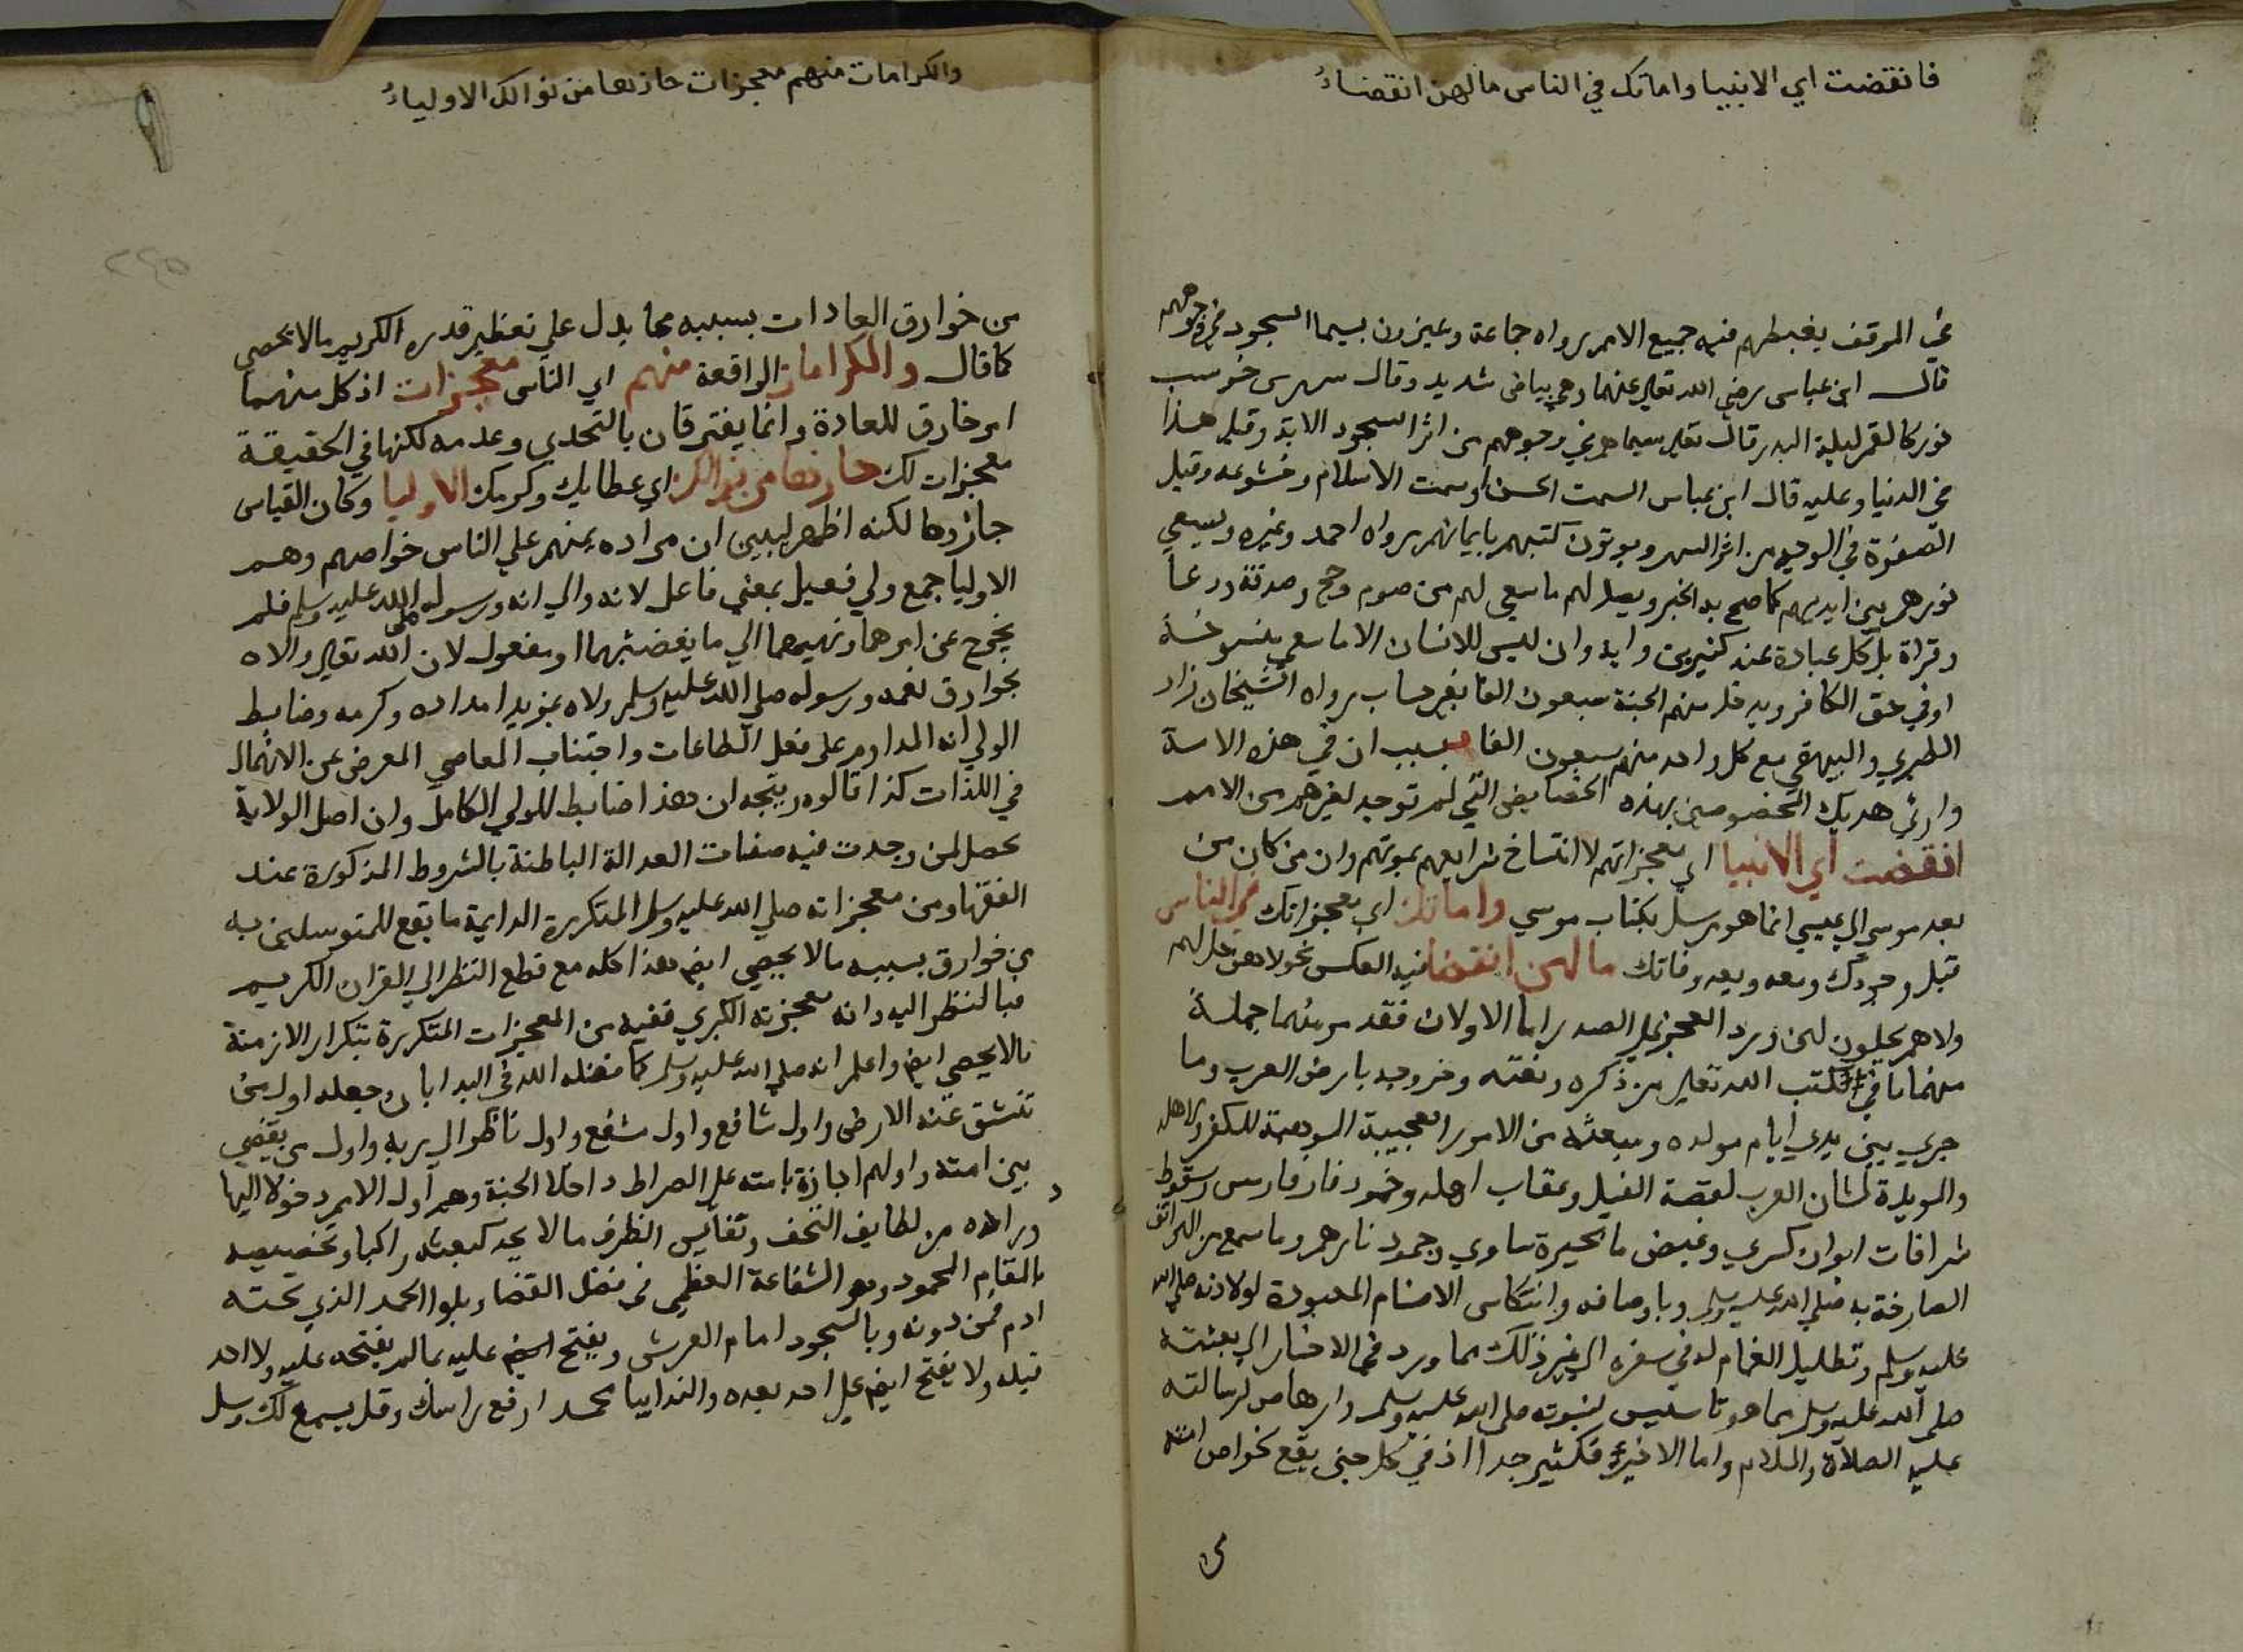 فانقضت اي الانبيا واماتك في الناس مالهن انقضاءُ
في الموقف يغبطهم فيه جميع الامم رواه جماعة ويميزون بسيما السجود في وجوههم
قال ابن عباس رضي الله تعالى عنهما وهي بياض شديد وقال شهر بن حوشب
نور كالقمر ليلة البدر قال تعالى سيماهم في وجوههم من اثر السجود الاية وقيل هذا
في الدنيا وعليه قال ابن عباس السمت الحسن او سمت الاسلام وخشوعه وقيل
الصفرة في الوجه من اثر السهر ويوتون كتبهم بايمانهم رواه احمد وغيره ويسعي
نورهم بين ايديهم كما صح به الخبر ويصل لهم ما سعي لهم من صوم وحج وصدقة ودعا
وقراة بل كل عبادة عند كثيرين واية وان ليس للانسان الا ما سعي منسوخة
او في حق الكافر ويدخل منهم الجنة سبعون الفا بغير حساب رواه الشيخان زاد
الطبري والبيهقي مع كل واحد منهم سبعون الفا بسبب ان في هذه الامة
وارثي هديك المخصوصين بهذه الخصايص التي لم توجد لغيرهم من الامم
انقضت اي الانبيا اي معجزاتهم لانتساخ شرايعهم بموتهم وان من كان من
بعد موسي الي عيسي انما هو مرسل بكتاب موسي واماتك اي معجزاتك في الناس
قبل وجودك ومعه وبعد وفاتك مالهن انقضا فيه العكس نحو لا هن حل لهم
ولا هم يحلون لهن ورد العجز على الصدر اما الاولان فقد مر منهما جملة
منهما ما في كتب الله تعالى من ذكره ونعته وخروجه بارض العرب وما
جري بين يدي ايام مولده ومبعثه من الامور العجيبة الموهنة للكفر واهله
والمويدة لشان العرب لقصة الفيل وعقاب اهله وخمود نار فارس وسقوط
شرافات ايوان كسري وغيض ما بحيرة ساوي وخمود نارهم وما سمع من الهواتف
الصارخة به صلى الله عليه وسلم وباوصافه وانتكاس الاصنام المعبودة لولادته صلى الله
عليه وسلم وتظليل الغمام له في سفره الي غير ذلك مما ورد في الاخبار الي بعثته
صلى الله عليه وسلم مما هو تاسيس لنبوته صلى الله عليه وسلم وارهاص لرسالته
عليه الصلاة والسلام واما الاخير فكثير جدا اذ في كل حين يقع لخواص امته
من
والكرامات منهم معجزات حازها من نوالك الاولياءُ
من خوارق العادات بسببه مما يدل علي تعظيم قدره الكريم ما لا يحصي
كما قال والكرامات الواقعة منهم اي الناس معجزات اذ كل منهما
امر خارق للعادة وانما يفترقان بالتحدي وعدمه لكنها في الحقيقة
معجزات لك حازها من نوالك اي عطايك وكرمك الاوليا وكان القياس
حازوها لكنه اظهر ليبين ان مراده بمنهم علي الناس خواصهم وهم
الاوليا جمع ولي فعيل بمعني فاعل لانه والي الله ورسوله صلى الله عليه وسلم فلم
يخرج عن امرهما ونهيهما الي ما يغضبهما او مفعول لان الله تعالى والاه
بخوارق نعمه ورسوله صلى الله عليه وسلم والاه بمزيد امداده وكرمه وضابط
الولي انه المداوم على فعل الطاعات واجتناب المعاصي المعرض عن الانهماك
في اللذات كذا قالوه ويتجه ان هذا ضابط للولي الكامل وان اصل الولاية
تحصل لمن وجدت فيه صفات العدالة الباطنة بالشروط المذكورة عند
الفقها ومن معجزاته صلى الله عليه وسلم المتكررة الدايمة ما يقع للمتوسلين به
من خوارق بسببه ما لا يحصي ايضا هذا كله مع قطع النظر الي القران الكريم
فبالنظر اليه وانه معجزته الكبري ففيه من المعجزات المتكررة بتكرار الازمنة
ما لا يحصي ايضا واعلم انه صلى الله عليه وسلم كما فضله الله في البدا بان جعله اول من
تنشق عنه الارض واول شافع واول مشفع واول ناظر الي ربه واول من يقضي
بين امته واولهم اجازة بامته على الصراط داخلا الجنة وهم اول الامم دخولا اليها
وزاده من لطايف التحف ونفايس الظرف ما لا يحد كبعثه راكبا وتخصيصه
بالمقام المحمود وهو الشفاعة العظمي في فصل القضا وبلوا الحمد الذي تحته
ادم فمن دونه وبالسجود امام العرش ويفتح الله عليه ما لم يفتحه علي ولا احد
قبله ولا يفتح ايضا علي احد بعده والندا بيا محمد ارفع راسك وقل يسمع لك وسل